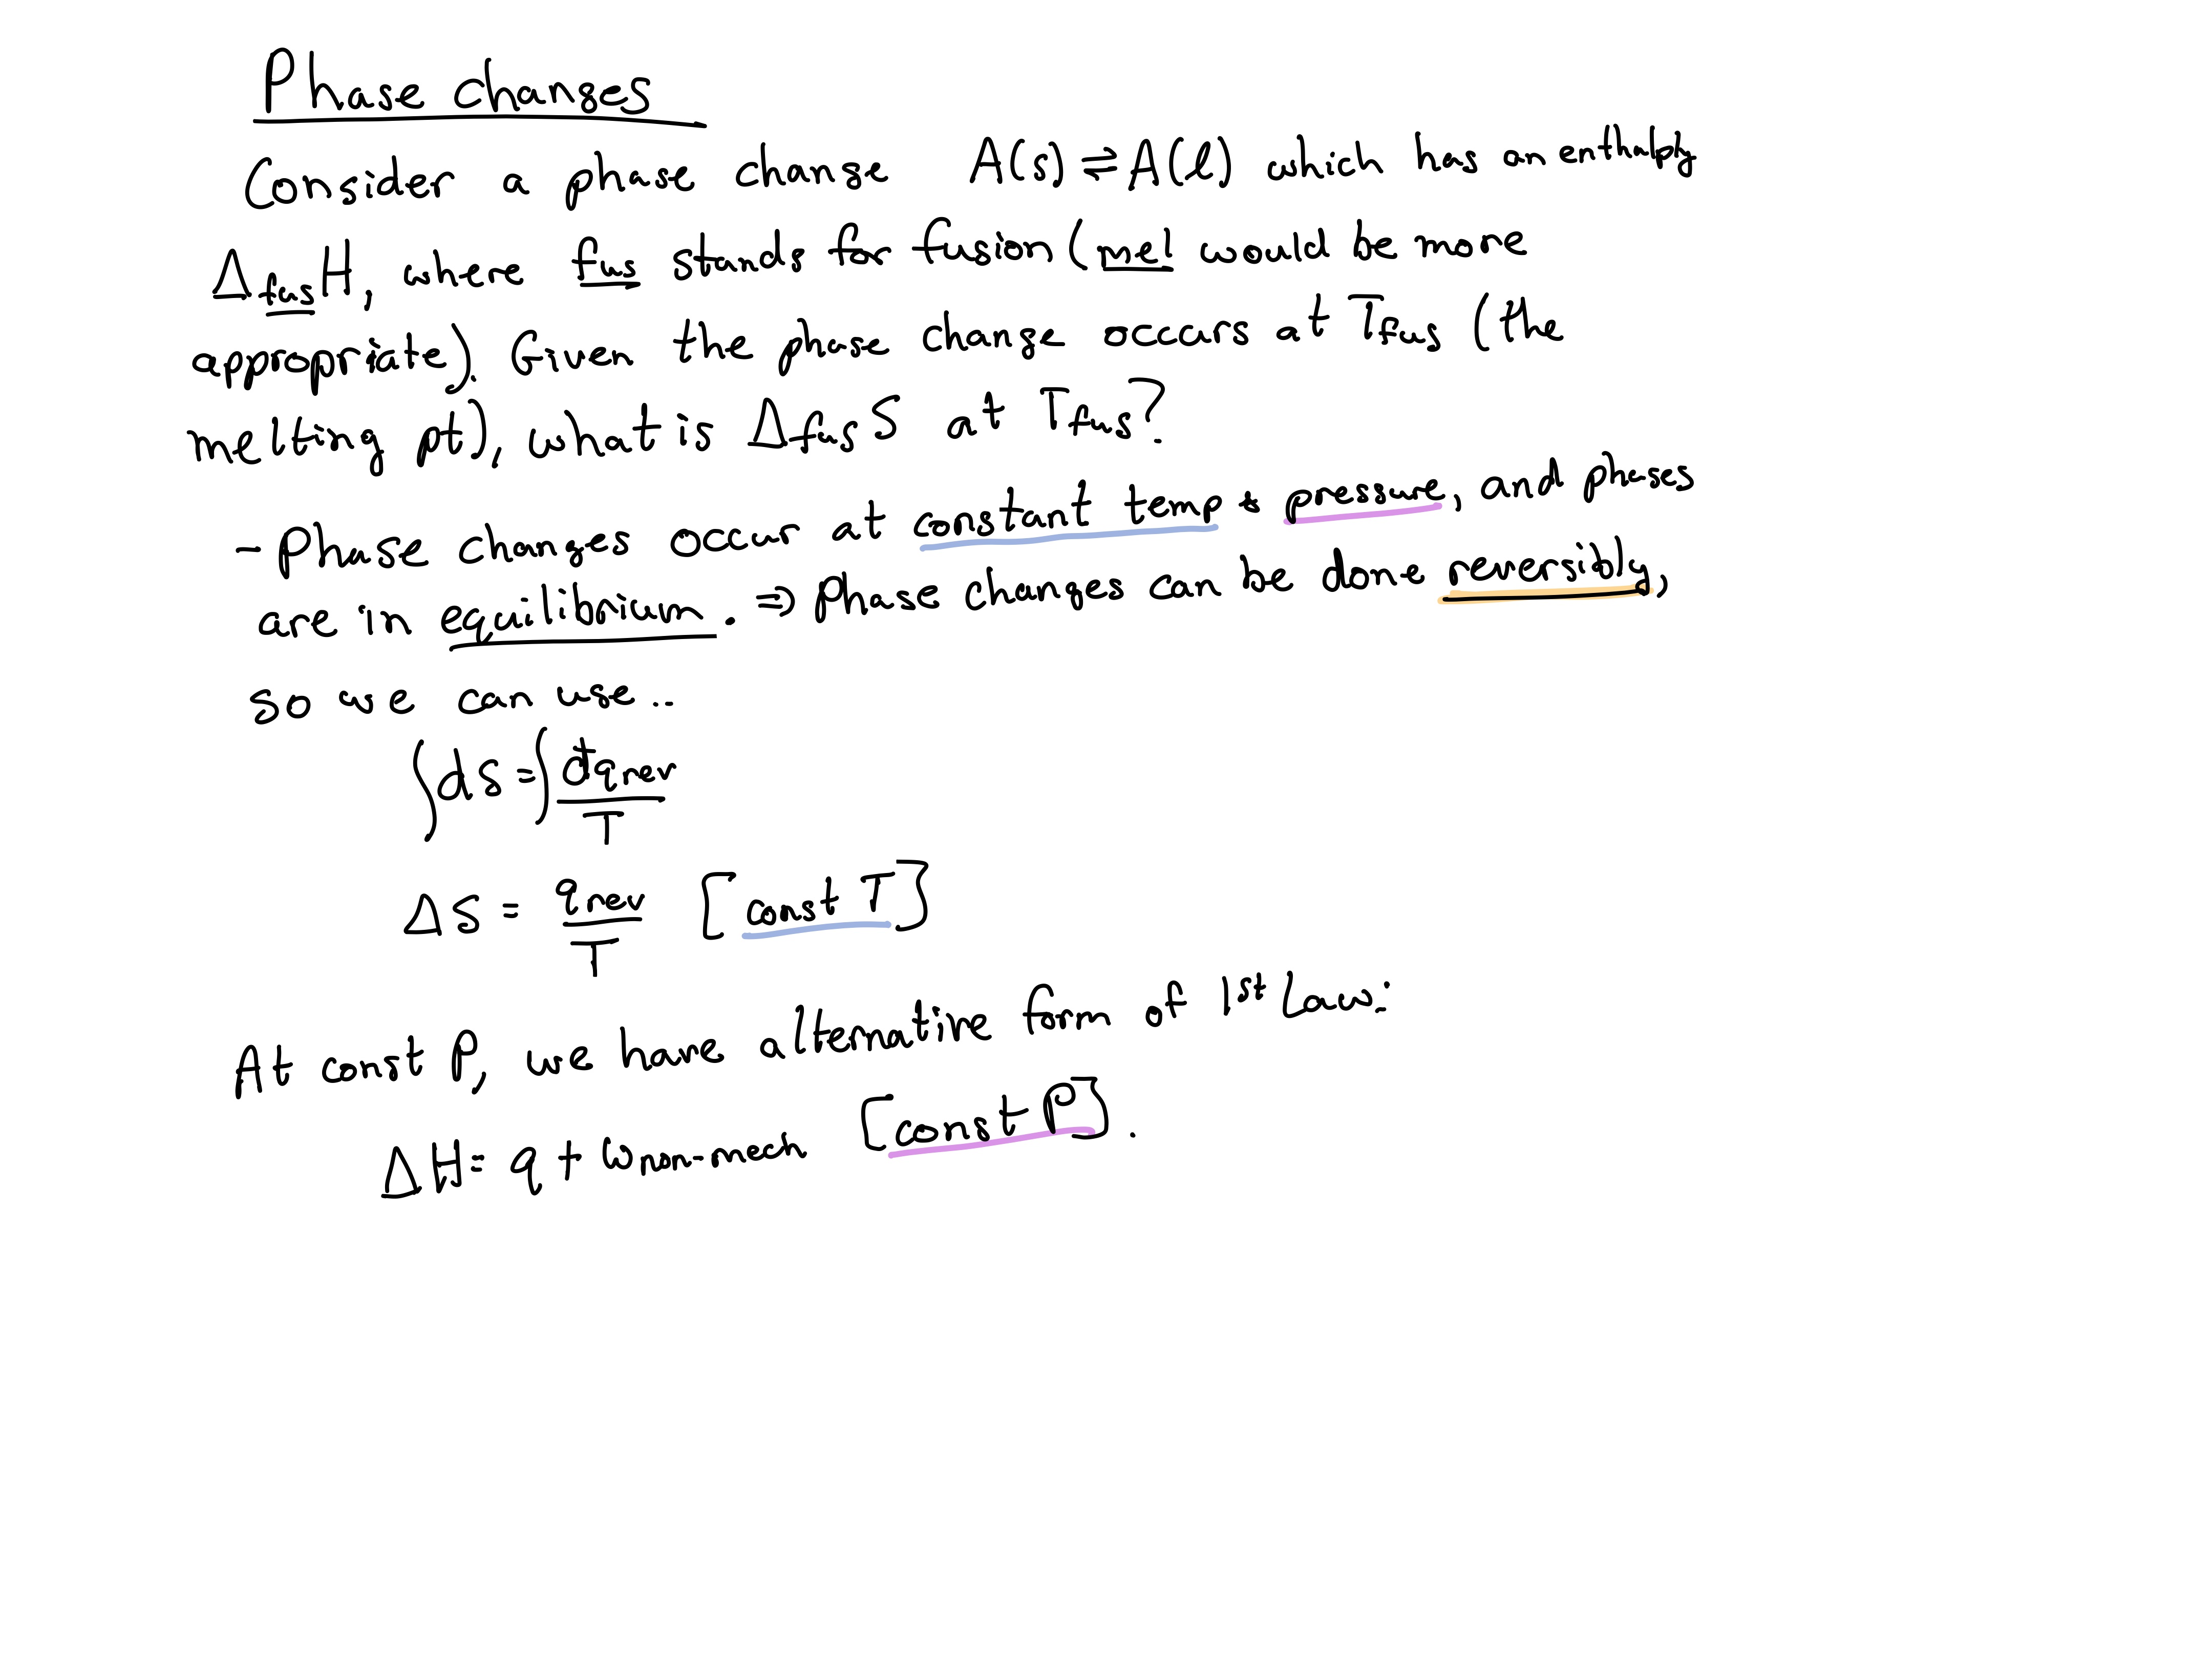 Phase changes
Consider a phase change A(s) ⇌ A(l) which has an enthalpy
Δfus H, where fus stands for fusion (mel would be more
appropriate). Given the phase change occurs at Tfus (the
melting pt), what is Δfus S at Tfus?
- Phase changes occur at constant temp & pressure, and phases
are in equilibrium. ⇒ Phase changes can be done reversibly,
so we can use..
∫dS = ∫đqrev/T
ΔS = qrev/T [const T]
At const P, we have alternative form of 1st Law:
ΔH = q + wnon-mech [const P].